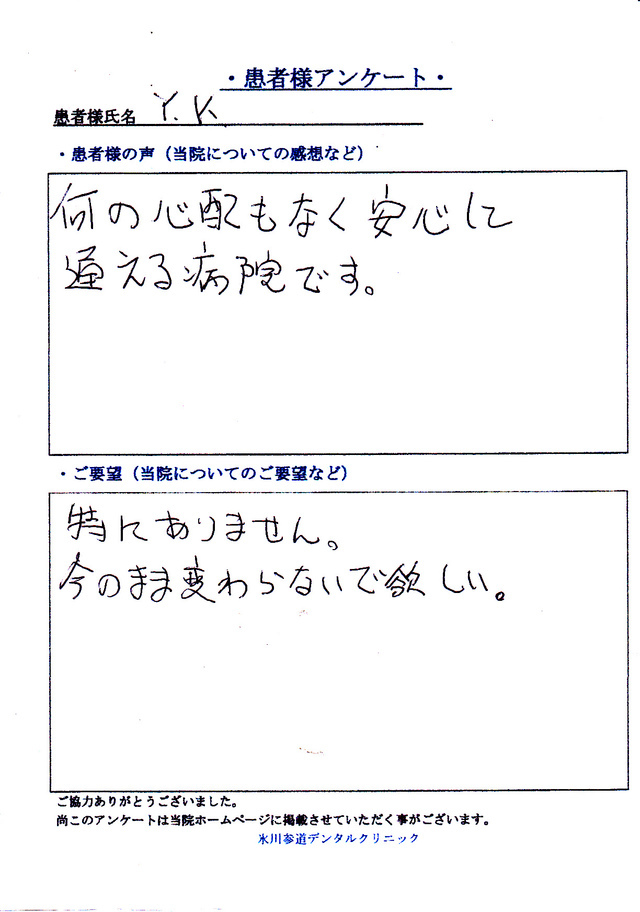 ・患者様アンケート・
患者様氏名 Y.K
・患者様の声（当院についての感想など）
何の心配もなく安心して
通える病院です。
・ご要望（当院についてのご要望など）
特にありません。
今のまま変わらないで欲しい。
ご協力ありがとうございました。
尚このアンケートは当院ホームページに掲載させていただく事がございます。
氷川参道デンタルクリニック